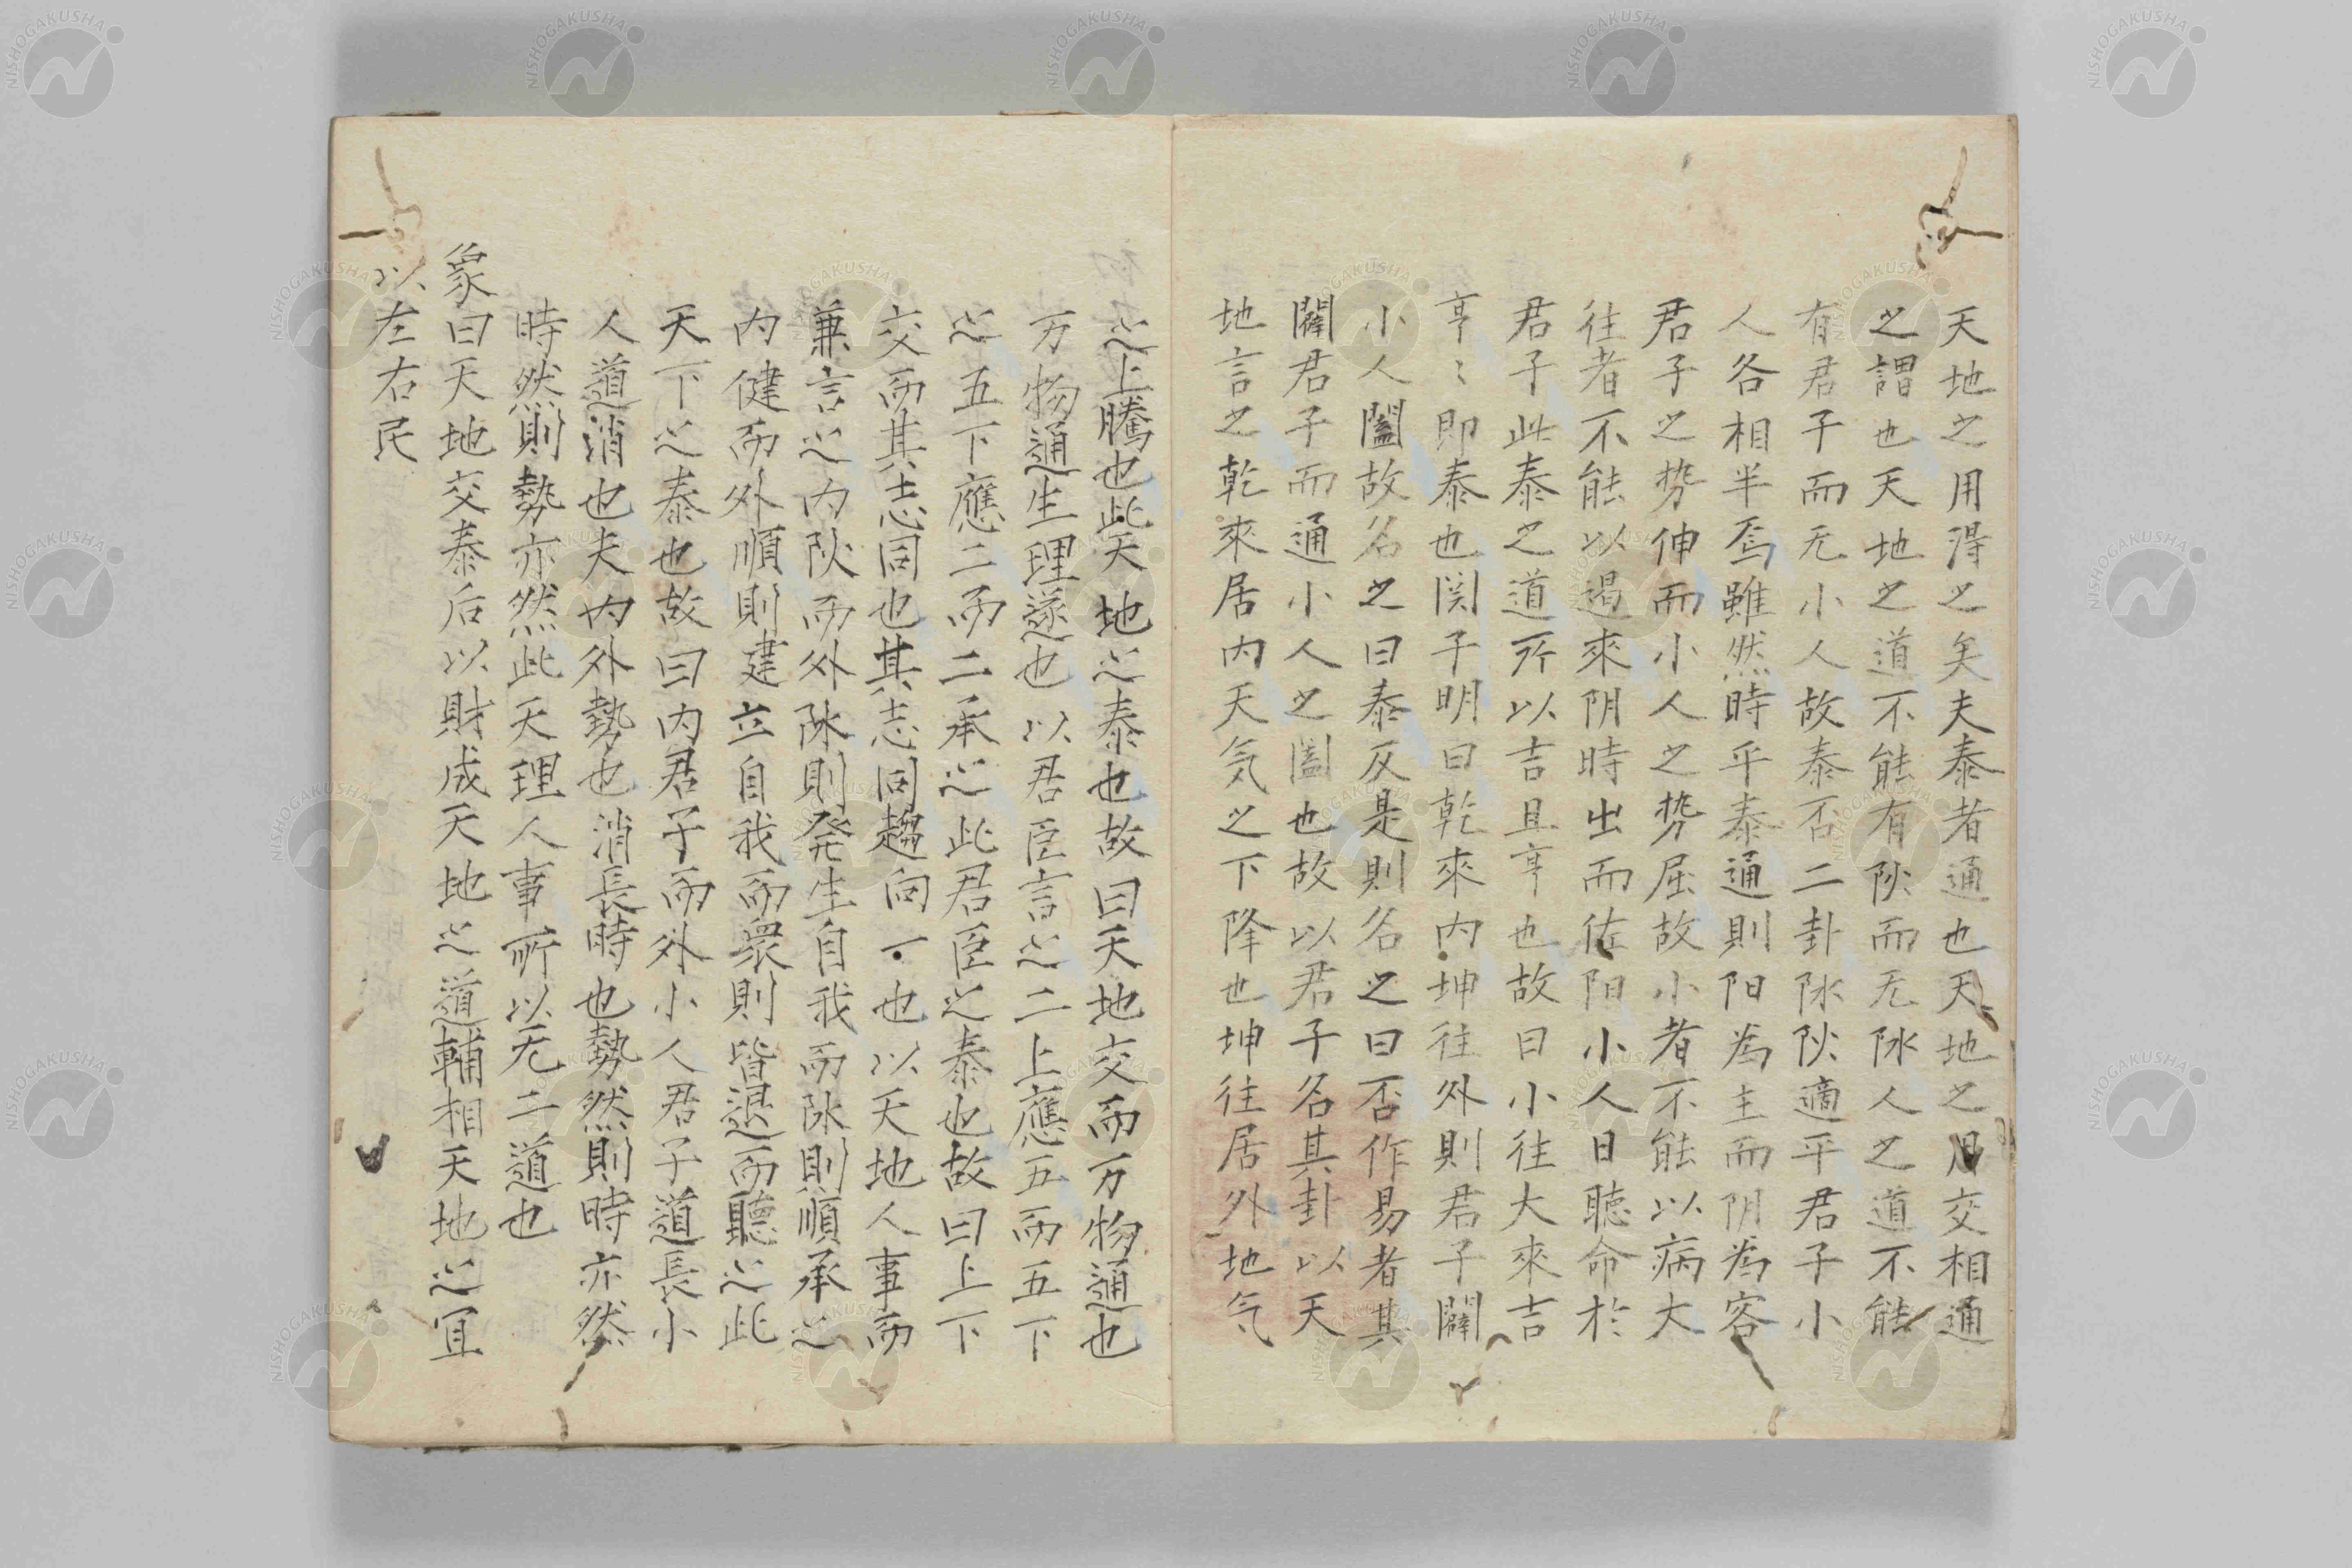 天地之用得之矣夫泰者通也天地之用交相通
之謂也天地之道不能有阦而无阥人之道不能
有君子而无小人故泰否二卦阥阦適平君子小
人各相半焉雖然時乎泰通則阳為主而阴為客
君子之势伸而小人之势屈故小者不能以病大
往者不能以遏來阴時出而佐阳小人日聴命於
君子此泰之道所以吉且亨也故曰小往大來吉
亨〻即泰也関子明曰乾來内坤往外則君子闢
小人闔故名之曰泰反是則名之曰否作易者其
闢君子而通小人之闔也故以君子名其卦以天
地言之乾來居内天気之下降也坤往居外地气
之上騰也此天地之泰也故曰天地交而万物通也
万物通生理遂也以君臣言之二上應五而五下
之五下應二而二承之此君臣之泰也故曰上下
交而其志同也其志同趨向一也以天地人事而
兼言之内阦而外阥則発生自我而阥則順承之
内健而外順則建立自我而衆則皆退而聽之此
天下之泰也故曰内君子而外小人君子道長小
人道消也夫内外勢也消長時也勢然則時亦然
時然則勢亦然此天理人事所以无二道也
象曰天地交泰后以財成天地之道輔相天地之宜
以左右民
NISHOGAKUSHA